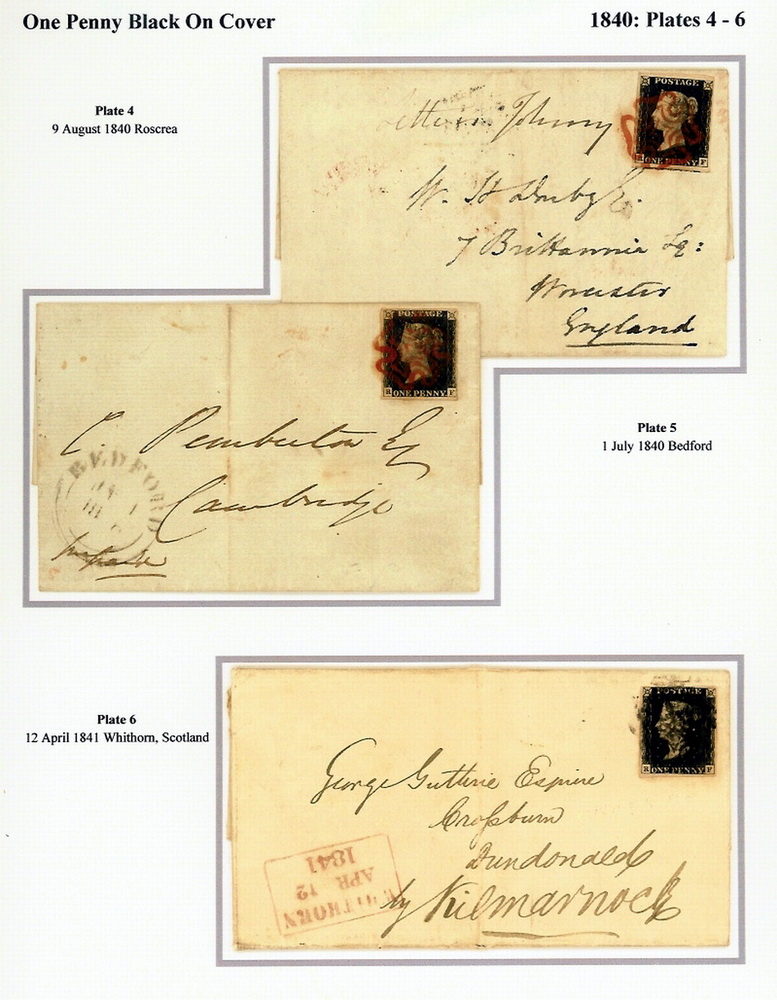 One Penny Black On Cover
1840: Plates 4 - 6
Plate 4
9 August 1840 Roscrea
POSTAGE
R ONE PENNY F
W. H
7 Brittannia Sq:
Worcester
England
Plate 5
1 July 1840 Bedford
POSTAGE
R ONE PENNY F
C. Pemberton Esq
Cambridge
BEDFORD
Plate 6
12 April 1841 Whithorn, Scotland
POSTAGE
R ONE PENNY F
George Guthrie Esquire
Crofsburn
Dundonald
by Kilmarnock
WHITHORN
APR 12
1841